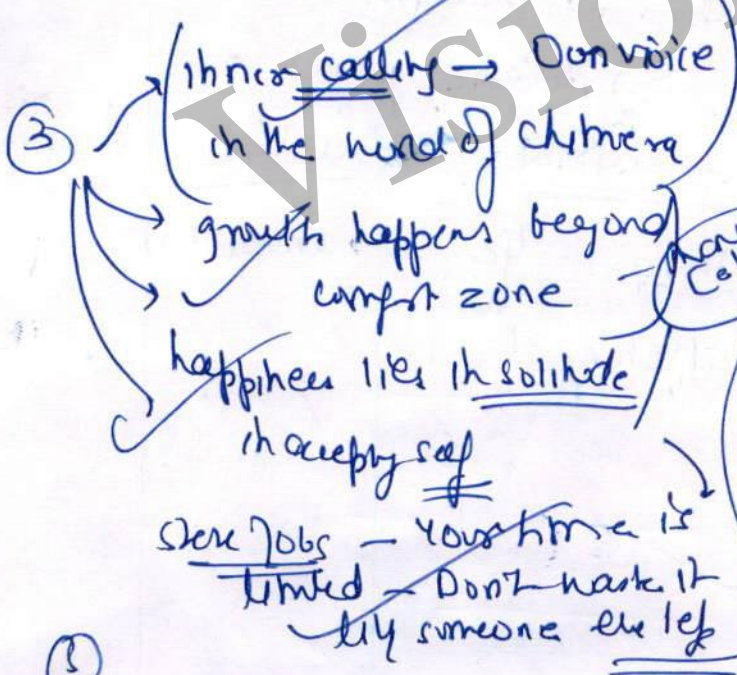 Vision
③ inner calling → Own voice
in the world of chimera
growth happens beyond
comfort zone –
happiness lies in solitude
in accepting self
Steve Jobs – Your time is
limited – Don't waste it
someone else